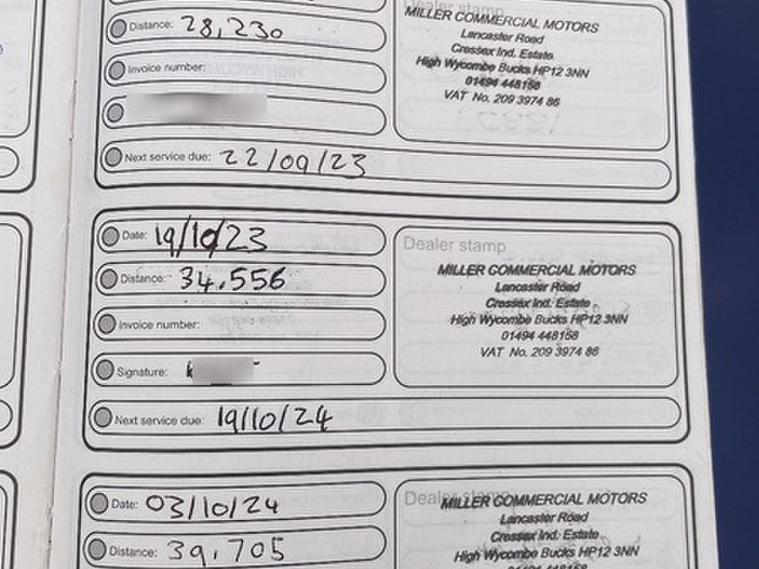 Dealer stamp
Distance: 28,230
MILLER COMMERCIAL MOTORS
Lancaster Road
Cressex Ind. Estate
High Wycombe Bucks HP12 3NN
01494 448158
VAT No. 209 3974 86
Invoice number:
Next service due: 22/09/23
Date: 19/10/23
Dealer stamp
Distance: 34.556
MILLER COMMERCIAL MOTORS
Lancaster Road
Cressex Ind. Estate
High Wycombe Bucks HP12 3NN
01494 448158
VAT No. 209 3974 86
Invoice number:
Signature:
Next service due: 19/10/24
Date: 03/10/24
Dealer stamp
MILLER COMMERCIAL MOTORS
Lancaster Road
Cressex Ind. Estate
High Wycombe Bucks HP12 3NN
01494 448158
Distance: 39,705